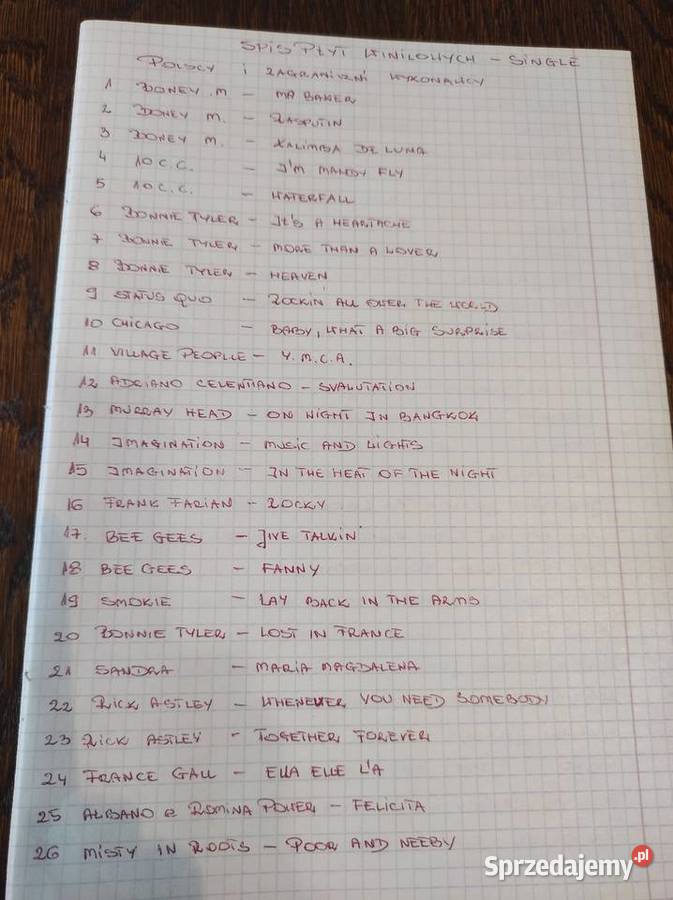 SPIS PŁYT WINILOWYCH - SINGLE
POLSCY i ZAGRANICZNI WYKONAWCY
1 BONEY M - MA BAKER
2 BONEY M. - RASPUTIN
3 BONEY M. - KALIMBA DE LUNA
4 10 C.C. - I'M MANDY FLY
5 10 C.C. - WATERFALL
6 BONNIE TYLER - It's A HEARTACHE
7 BONNIE TYLER - MORE THAN A LOVER
8 BONNIE TYLER - HEAVEN
9 STATUS QUO - ROCKIN' ALL OVER THE WORLD
10 CHICAGO - BABY, WHAT A BIG SURPRISE
11 VILLAGE PEOPLLE - Y.M.C.A.
12 ADRIANO CELENTIANO - SVALUTATION
13 MURRAY HEAD - ON NIGHT IN BANGKOK
14 IMAGINATION - MUSIC AND LIGHTS
15 IMAGINATION - IN THE HEAT OF THE NIGHT
16 FRANK FARIAN - ROCKY
17. BEE GEES - JIVE TALKIN'
18 BEE GEES - FANNY
19 SMOKIE - LAY BACK IN THE ARMS
20 BONNIE TYLER - LOST IN FRANCE
21 SANDRA - MARIA MAGDALENA
22 RICK ASTLEY - WHENEVER YOU NEED SOMEBODY
23 RICK ASTLEY - TOGETHER FOREVER
24 FRANCE GALL - ELLA ELLE L'A
25 ALBANO e ROMINA POWER - FELICITA
26 MISTY IN ROOTS - POOR AND NEEBY
Sprzedajemy.pl